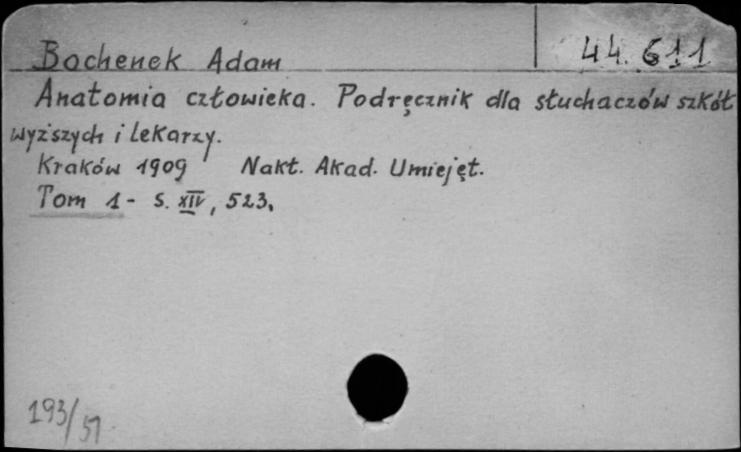 Bochenek Adam
44.611
Anatomia człowieka. Podręcznik dla słuchaczów szkół
wyższych i lekarzy.
Kraków 1909 Nakł. Akad. Umiejęt.
Tom 1- s. XIV, 523.
193/51